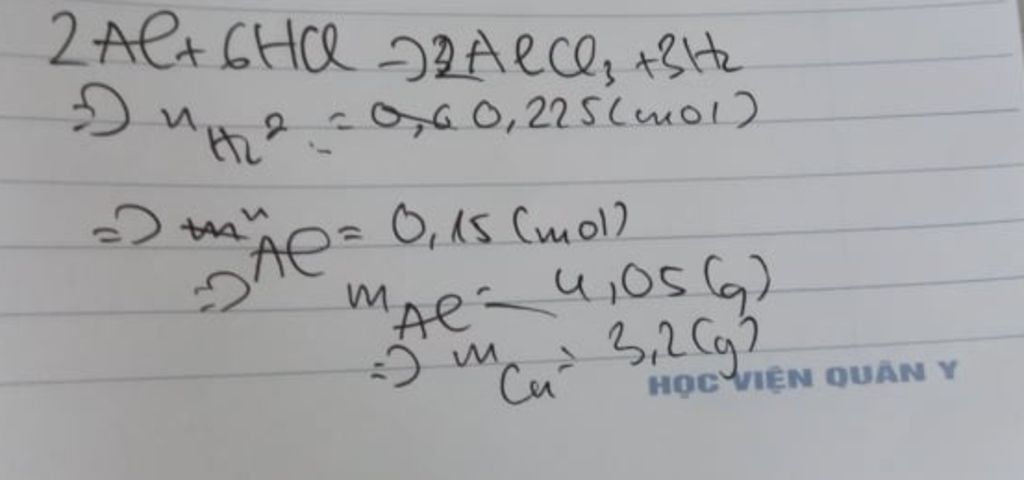 2Al + 6HCl => 2AlCl3 + 3H2
=> nH2 = 0,225 (mol)
=> nAl = 0,15 (mol)
=> mAl = 4,05 (g)
=> mCu = 3,2 (g)
HỌC VIỆN QUÂN Y